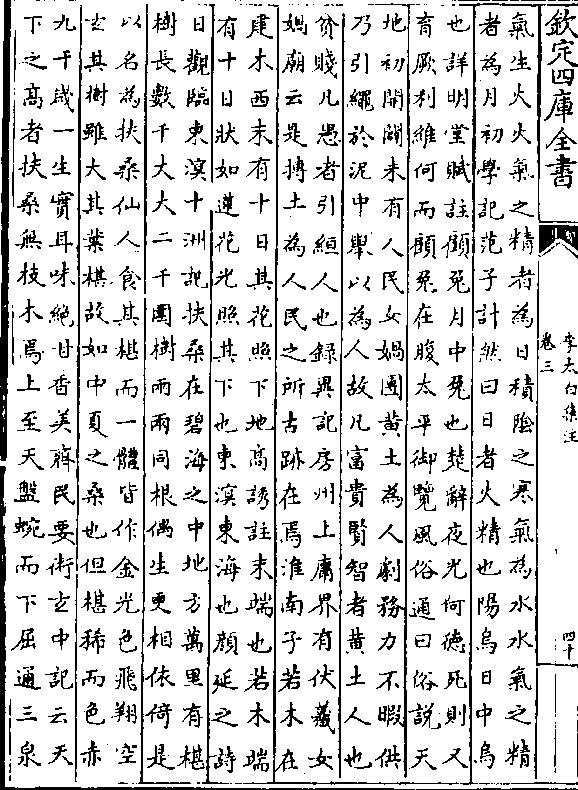 欽定四庫全書
李太白集注
卷三
四十
氣生火火氣之精者為日積陰之寒氣為水水氣之精
者為月初學記范子計然曰日者火精也陽烏日中烏
也詳明堂賦註顧兔月中兔也楚辭夜光何德死則又
育厥利維何而顧兔在腹太平御覽風俗通曰俗說天
地初開闢未有人民女媧團黃土為人劇務力不暇供
乃引繩於泥中舉以為人故凡富貴賢智者黃土人也
貧賤凡愚者引縆人也録異記房州上庸界有伏羲女
媧廟云是摶土為人民之所古跡在焉淮南子若木在
建木西末有十日其花照下地高誘註末端也若木端
有十日狀如蓮花光照其下也東溟東海也顔延之詩
日觀臨東溟十洲記扶桑在碧海之中地方萬里有椹
樹長數千丈大二千圍樹兩兩同根偶生更相依倚是
以名為扶桑仙人食其椹而一體皆作金光色飛翔空
玄其樹雖大其葉椹故如中夏之桑也但椹稀而色赤
九千歳一生實耳味絶甘香美齊民要術玄中記云天
下之髙者扶桑無枝木焉上至天盤蜿而下屈通三泉